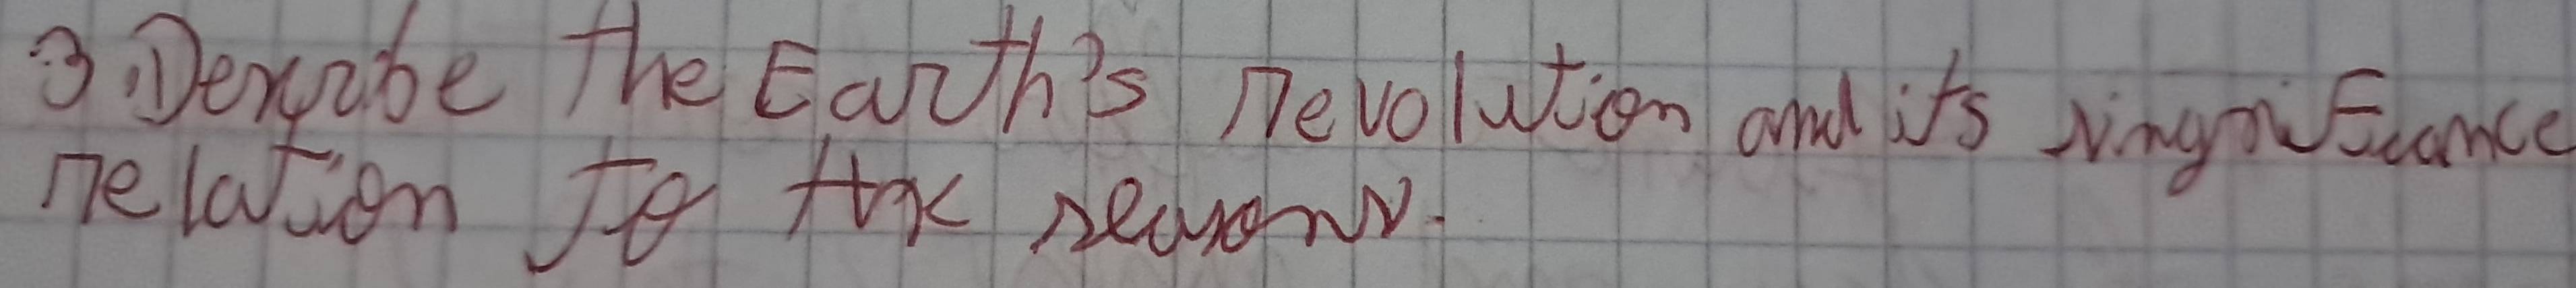 3. Describe the Earth's revolution and its singnificance
relation to the seasons.